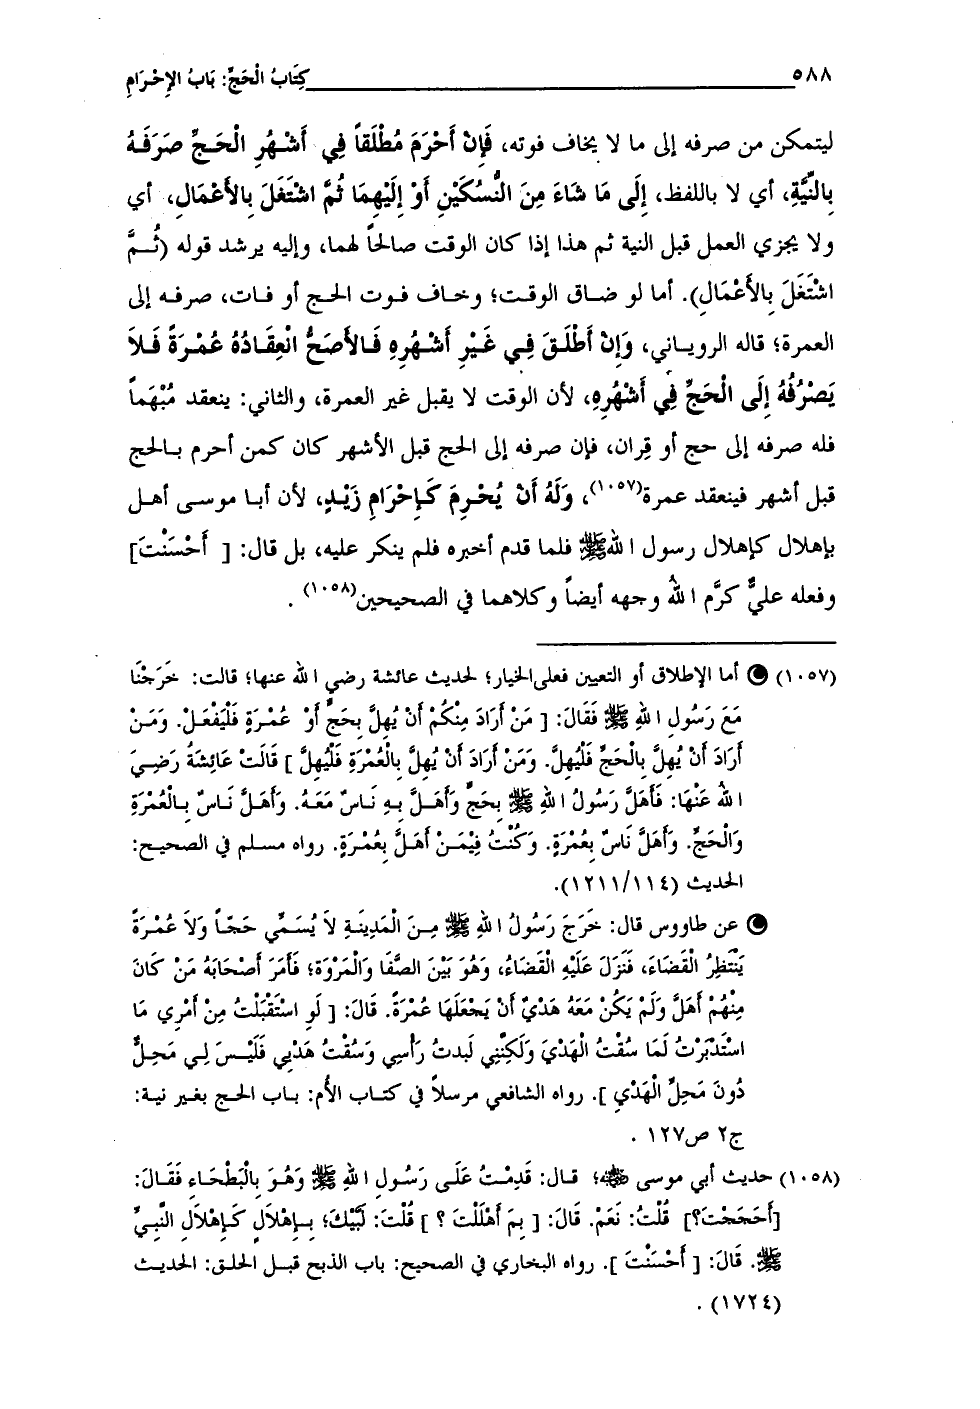 ٥٨٨ كِتَابُ الْحَجِّ: بَابُ الإِحْرَامِ
ليتمكن من صرفه إلى ما لا يخاف فوته، فَإِنْ أَحْرَمَ مُطْلَقاً فِي أَشْهُرِ الْحَجِّ صَرَفَهُ
بِالنِّيَّةِ، أي لا باللفظ، إِلَى مَا شَاءَ مِنَ النُّسُكَيْنِ أَوْ إِلَيْهِمَا ثُمَّ اشْتَغَلَ بِالأَعْمَالِ، أي
ولا يجزي العمل قبل النية ثم هذا إذا كان الوقت صالحاً لهما، وإليه يرشد قوله (ثُمَّ
اشْتَغَلَ بِالأَعْمَالِ). أما لو ضاق الوقت؛ وخاف فوت الحج أو فات، صرفه إلى
العمرة؛ قاله الروياني، وَإِنْ أَطْلَقَ فِي غَيْرِ أَشْهُرِهِ فَالأَصَحُّ انْعِقَادُهُ عُمْرَةً فَلاَ
يَصْرُفُهُ إِلَى الْحَجِّ فِي أَشْهُرِهِ، لأن الوقت لا يقبل غير العمرة، والثاني: ينعقد مُبْهَماً
فله صرفه إلى حج أو قِران، فإن صرفه إلى الحج قبل الأشهر كان كمن أحرم بالحج
قبل أشهر فينعقد عمرة(١٠٥٧)، وَلَهُ أَنْ يُحْرِمَ كَإِحْرَامِ زَيْدٍ، لأن أبا موسى أهل
بإهلال كإهلال رسول اللهﷺ فلما قدم أخبره فلم ينكر عليه، بل قال: [ أَحْسَنْتَ]
وفعله عليٌّ كرَّم اللهُ وجهه أيضاً وكلاهما في الصحيحين(١٠٥٨) .
(١٠٥٧) أما الإطلاق أو التعيين فعلى الخيار؛ لحديث عائشة رضي الله عنها؛ قالت: خَرَجْنَا
مَعَ رَسُولِ اللهِ ﷺ فَقَالَ: [ مَنْ أَرَادَ مِنْكُمْ أَنْ يُهِلَّ بِحَجٍّ أَوْ عُمْرَةٍ فَلْيَفْعَلْ. وَمَنْ
أَرَادَ أَنْ يُهِلَّ بِالْحَجِّ فَلْيُهِلَّ. وَمَنْ أَرَادَ أَنْ يُهِلَّ بِالْعُمْرَةِ فَلْيُهِلَّ ] قَالَتْ عَائِشَةُ رَضِيَ
اللهُ عَنْهَا: فَأَهَلَّ رَسُولُ اللهِ ﷺ بِحَجٍّ وَأَهَلَّ بِهِ نَاسٌ مَعَهُ. وَأَهَلَّ نَاسٌ بِالْعُمْرَةِ
وَالْحَجِّ. وَأَهَلَّ نَاسٌ بِعُمْرَةٍ. وَكُنْتُ فِيْمَنْ أَهَلَّ بِعُمْرَةٍ. رواه مسلم في الصحيح:
الحديث (١٢١١/١١٤).
عن طاووس قال: خَرَجَ رَسُولُ اللهِ ﷺ مِنَ الْمَدِينَةِ لاَ يُسَمِّي حَجّاً وَلاَ عُمْرَةً
يَنْتَظِرُ الْقَضَاءَ، فَنَزَلَ عَلَيْهِ الْقَضَاءُ، وَهُوَ بَيْنَ الصَّفَا وَالْمَرْوَةِ؛ فَأَمَرَ أَصْحَابَهُ مَنْ كَانَ
مِنْهُمْ أَهَلَّ وَلَمْ يَكُنْ مَعَهُ هَدْيٌ أَنْ يَجْعَلَهَا عُمْرَةً. قَالَ: [ لَوِ اسْتَقْبَلْتُ مِنْ أَمْرِي مَا
اسْتَدْبَرْتُ لَمَا سُقْتُ الْهَدْيَ وَلَكِنِّي لَبدتُ رَأْسِي وَسُقْتُ هَدْيِي فَلَيْسَ لِي مَحِلٌّ
دُونَ مَحِلِّ الْهَدْيِ ]. رواه الشافعي مرسلاً في كتاب الأُم: باب الحج بغير نية:
ج٢ ص١٢٧ .
(١٠٥٨) حديث أبي موسى ﷺ؛ قال: قَدِمْتُ عَلَى رَسُولِ اللهِ ﷺ وَهُوَ بِالْبَطْحَاءِ فَقَالَ:
[أَحَجَجْتَ؟] قُلْتُ: نَعَمْ. قَالَ: [ بِمَ أَهْلَلْتَ ؟ ] قُلْتَ: لَبَّيْكَ؛ بِإِهْلاَلٍ كَإِهْلاَلِ النَّبِيِّ
ﷺ. قَالَ: [ أَحْسَنْتَ ]. رواه البخاري في الصحيح: باب الذبح قبل الحلق: الحديث
(١٧٢٤) .